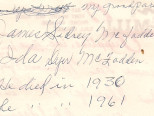 my grandpar
James Sidney McFadden
Ida Dyer McFadden
He died in 1930
She " " " 1961